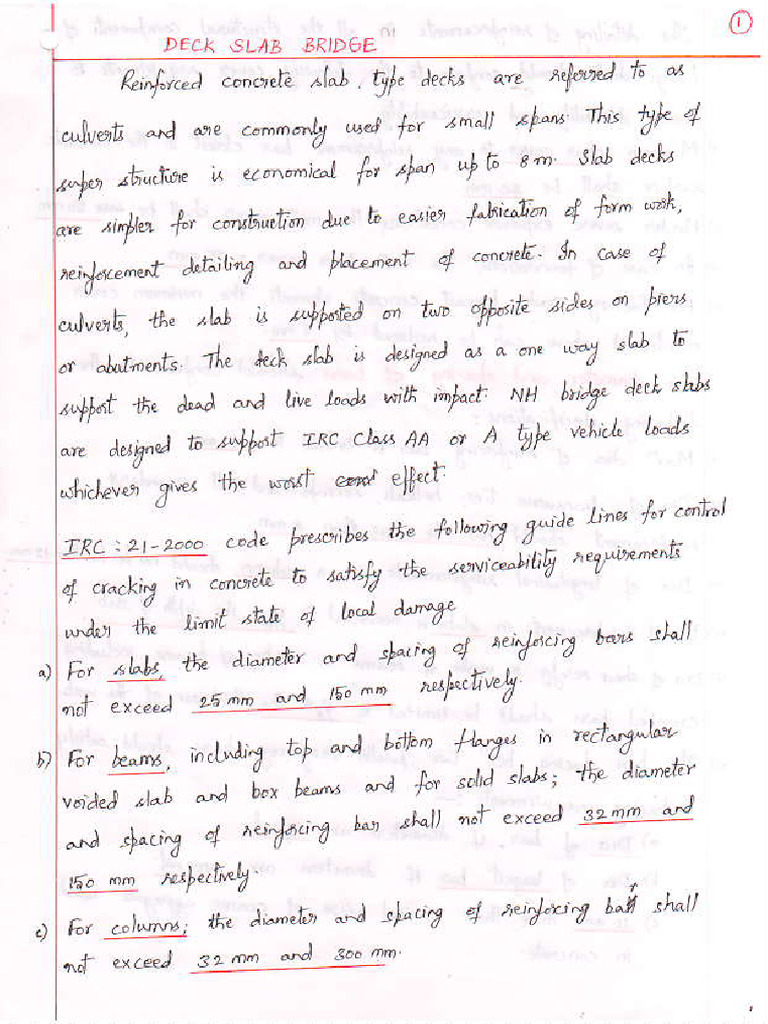 1
DECK SLAB BRIDGE
Reinforced concrete slab, type decks are referred to as
culverts and are commonly used for small spans. This type of
super structure is economical for span up to 8 m. Slab decks
are simpler for construction due to easier fabrication of form work,
reinforcement detailing and placement of concrete. In case of
culverts, the slab is supported on two opposite sides on piers
or abutments. The deck slab is designed as a one way slab to
support the dead and live loads with impact. NH bridge deck slabs
are designed to support IRC Class AA or A type vehicle loads
whichever gives the worst effect.
IRC : 21-2000 code prescribes the following guide lines for control
of cracking in concrete to satisfy the serviceability requirements
under the limit state of local damage
a) For slabs, the diameter and spacing of reinforcing bars shall
not exceed 25 mm and 150 mm respectively.
b) For beams, including top and bottom flanges in rectangular
voided slab and box beams and for solid slabs; the diameter
and spacing of reinforcing bar shall not exceed 32 mm and
150 mm respectively.
c) For columns; the diameter and spacing of reinforcing bars shall
not exceed 32 mm and 300 mm.